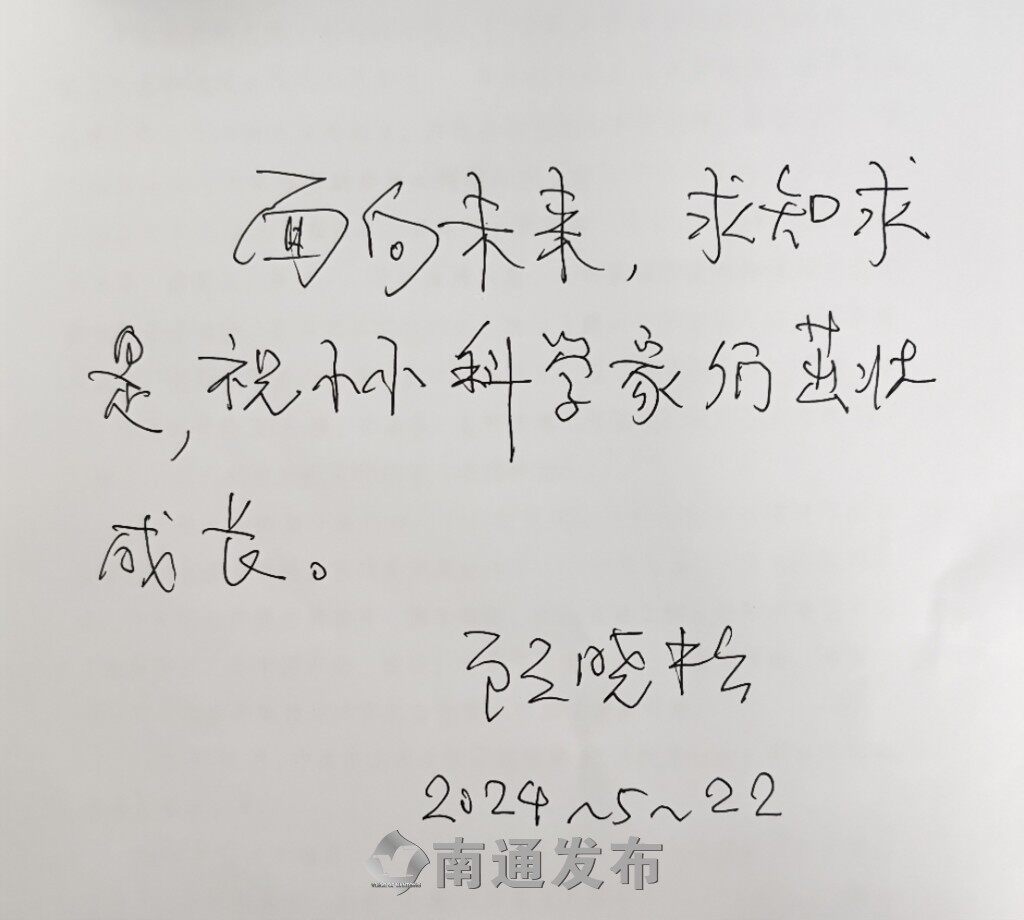 面向未来，求知求
是，祝小小科学家们茁壮
成长。
顾晓松
2024~5~22
南通发布